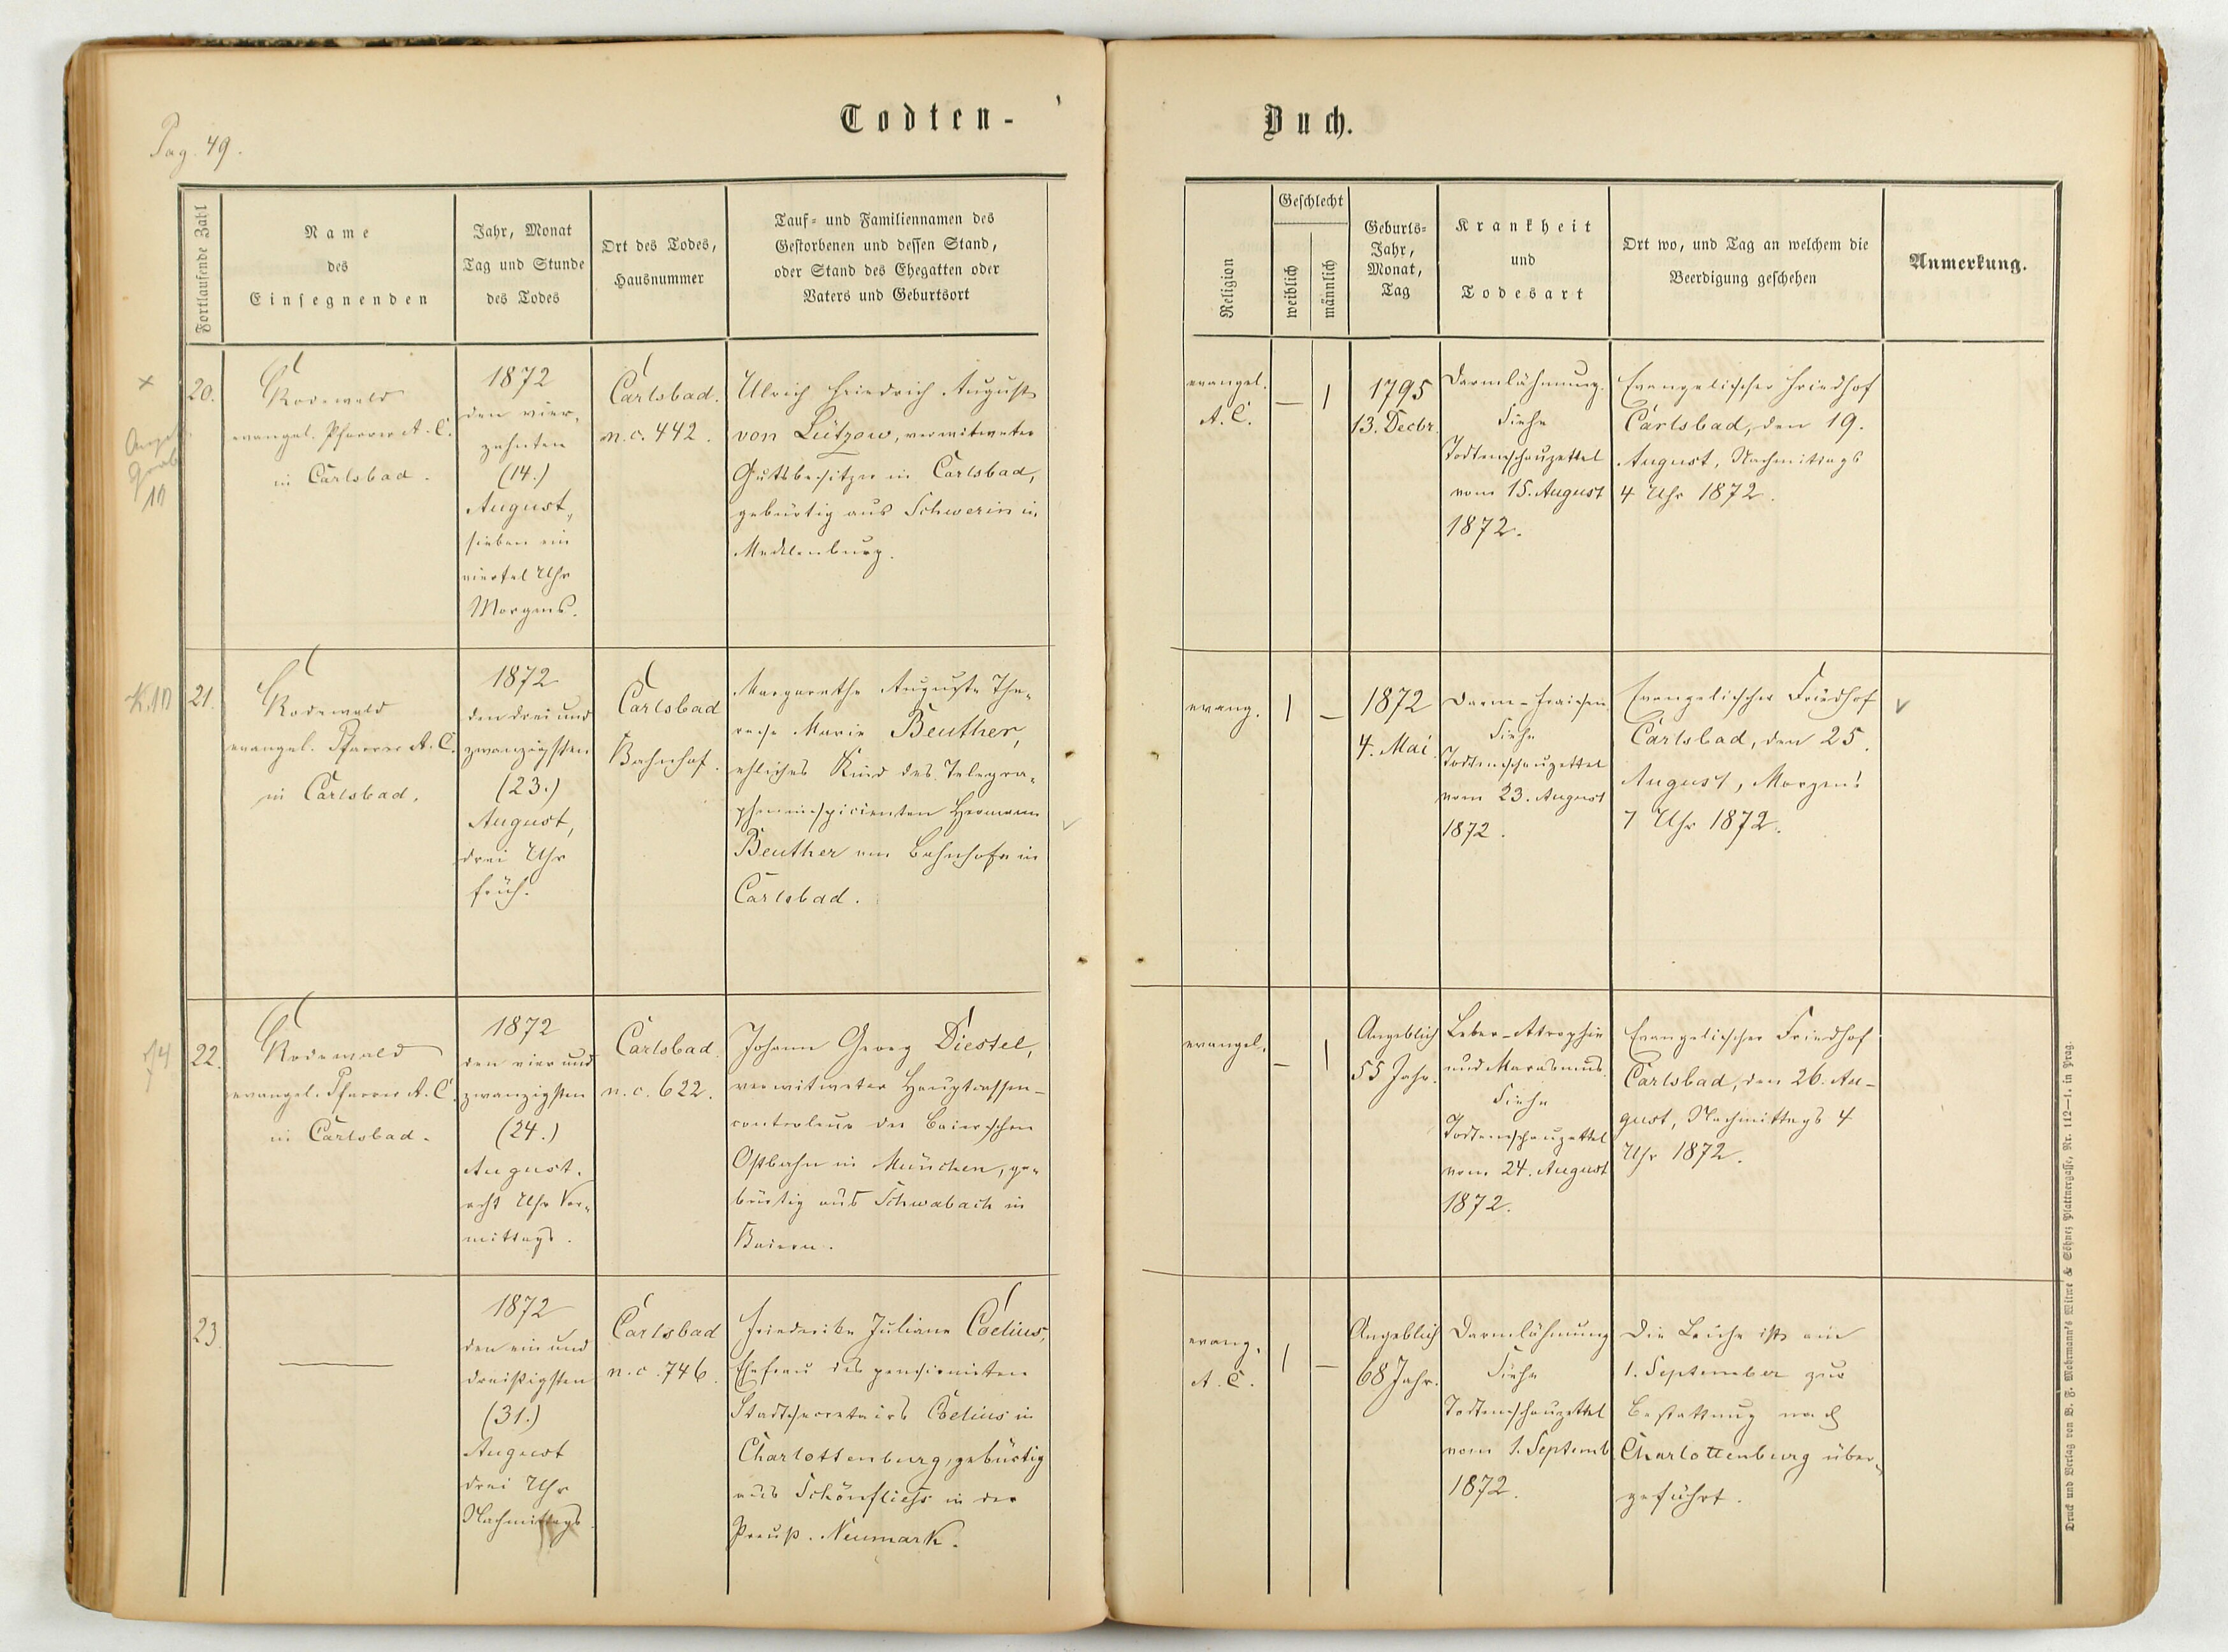 Todten-
Buch.
Pag. 49.
Fortlaufende Zahl
Name
des
Einsegnenden
Jahr, Monat
Tag und Stunde
des Todes
Ort des Todes,
Hausnummer
Tauf- und Familiennamen des
Gestorbenen und dessen Stand,
oder Stand des Ehegatten oder
Vaters und Geburtsort
Religion
Geschlecht
weiblich
männlich
Geburts-
Jahr,
Monat,
Tag
Krankheit
und
Todesart
Ort wo, und Tag an welchem die
Beerdigung geschehen
Anmerkung.
20.
Rodewald
evangel. Pfarrer A. C.
in Carlsbad.
1872
den vier-
zehnten
(14.)
August,
sieben ein
viertel Uhr
Morgens.
Carlsbad.
n. c. 442.
Ulrich Friedrich August
von Lützow, verwitweter
Gutsbesitzer in Carlsbad,
gebürtig aus Schwerin in
Mecklenburg.
evangel.
A. C.
— 1
1795
13. Decbr.
Darmlähmung.
Siehe
Todtenschauzettel
vom 15. August
1872.
Evangelischer Friedhof
Carlsbad, den 19.
August, Nachmittags
4 Uhr 1872.
K. 10
21.
Rodewald
evangel. Pfarrer A. C.
in Carlsbad.
1872
den drei und
zwanzigsten
(23.)
August,
drei Uhr
früh.
Carlsbad
Bahnhof.
Margarethe Auguste The-
rese Marie Beuther,
eheliches Kind des Telegra-
pheninspicienten Hermann
Beuther am Bahnhofe in
Carlsbad.
evang.
1 —
1872
4. Mai.
Darm-Fraisen
Siehe
Todtenschauzettel
vom 23. August
1872.
Evangelischer Friedhof
Carlsbad, den 25.
August, Morgens
7 Uhr 1872.
22.
Rodewald
evangel. Pfarrer A. C.
in Carlsbad.
1872
den vier und
zwanzigsten
(24.)
August.
acht Uhr Vor-
mittags.
Carlsbad.
n. c. 622.
Johann Georg Diestel,
verwitweter Hauptcassen-
controleur der Baierschen
Ostbahn in München, ge-
bürtig aus Schwabach in
Baiern.
evangel.
— 1
Angeblich
55 Jahr.
Leber-Atrophie
und Marasmus.
Siehe
Todtenschauzettel
vom 24. August
1872.
Evangelischer Friedhof
Carlsbad, den 26. Au-
gust, Nachmittags 4
Uhr 1872.
23.
1872
den ein und
dreißigsten
(31.)
August
drei Uhr
Nachmittags
Carlsbad
n. c. 746.
Friederike Juliane Coelius,
Ehefrau des pensionirten
Stadtsecretairs Coelius in
Charlottenburg, gebürtig
aus Schönfliess in der
Preuß. Neumark.
evang.
A. C.
1 —
Angeblich
68 Jahr.
Darmlähmung
Siehe
Todtenschauzettel
vom 1. Septemb.
1872.
Die Leiche ist am
1. September zur
Bestattung nach
Charlottenburg über-
geführt.
Druck und Verlag von B. F. Mohrmann's Witwe & Söhne, Plattnergasse, Nr. 112—1. in Prag.